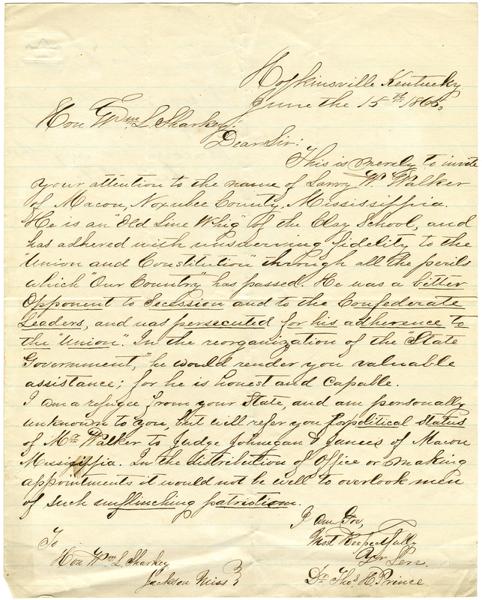 Hopkinsville Kentucky
June the 15th 1865,
Hon Wm L Sharkey;
Dear Sir:
This is merely to invite
your attention to the name of W. Walker
of Macon, Noxubee County, Mississippia.
He is an "Old Line Whig" of the Clay School, and
has adhered with unswerving fidelity to the
"Union and Constitution" through all the perils
which "Our Country" has passed. He was a bitter
Opponent to Secession and to the Confederate
Leaders, and was persecuted for his adherence to
the Union. In the reorganization of the "State
Government", he would render you valuable
assistance; for he is honest and Capable.
I am a refugee from your State, and am personally
unknown to you, but will refer you for political status
of Mr Walker to Judge & of Macon
Missisippia. In the distribution of Office or making
appointments it would not be well to overlook men
of such unflinching patriotism.
I am Gov,
Most Respectfully
Yr Ser.
Dr Thos H Prince
To
Hon Wm L Sharkey
Jackson Miss